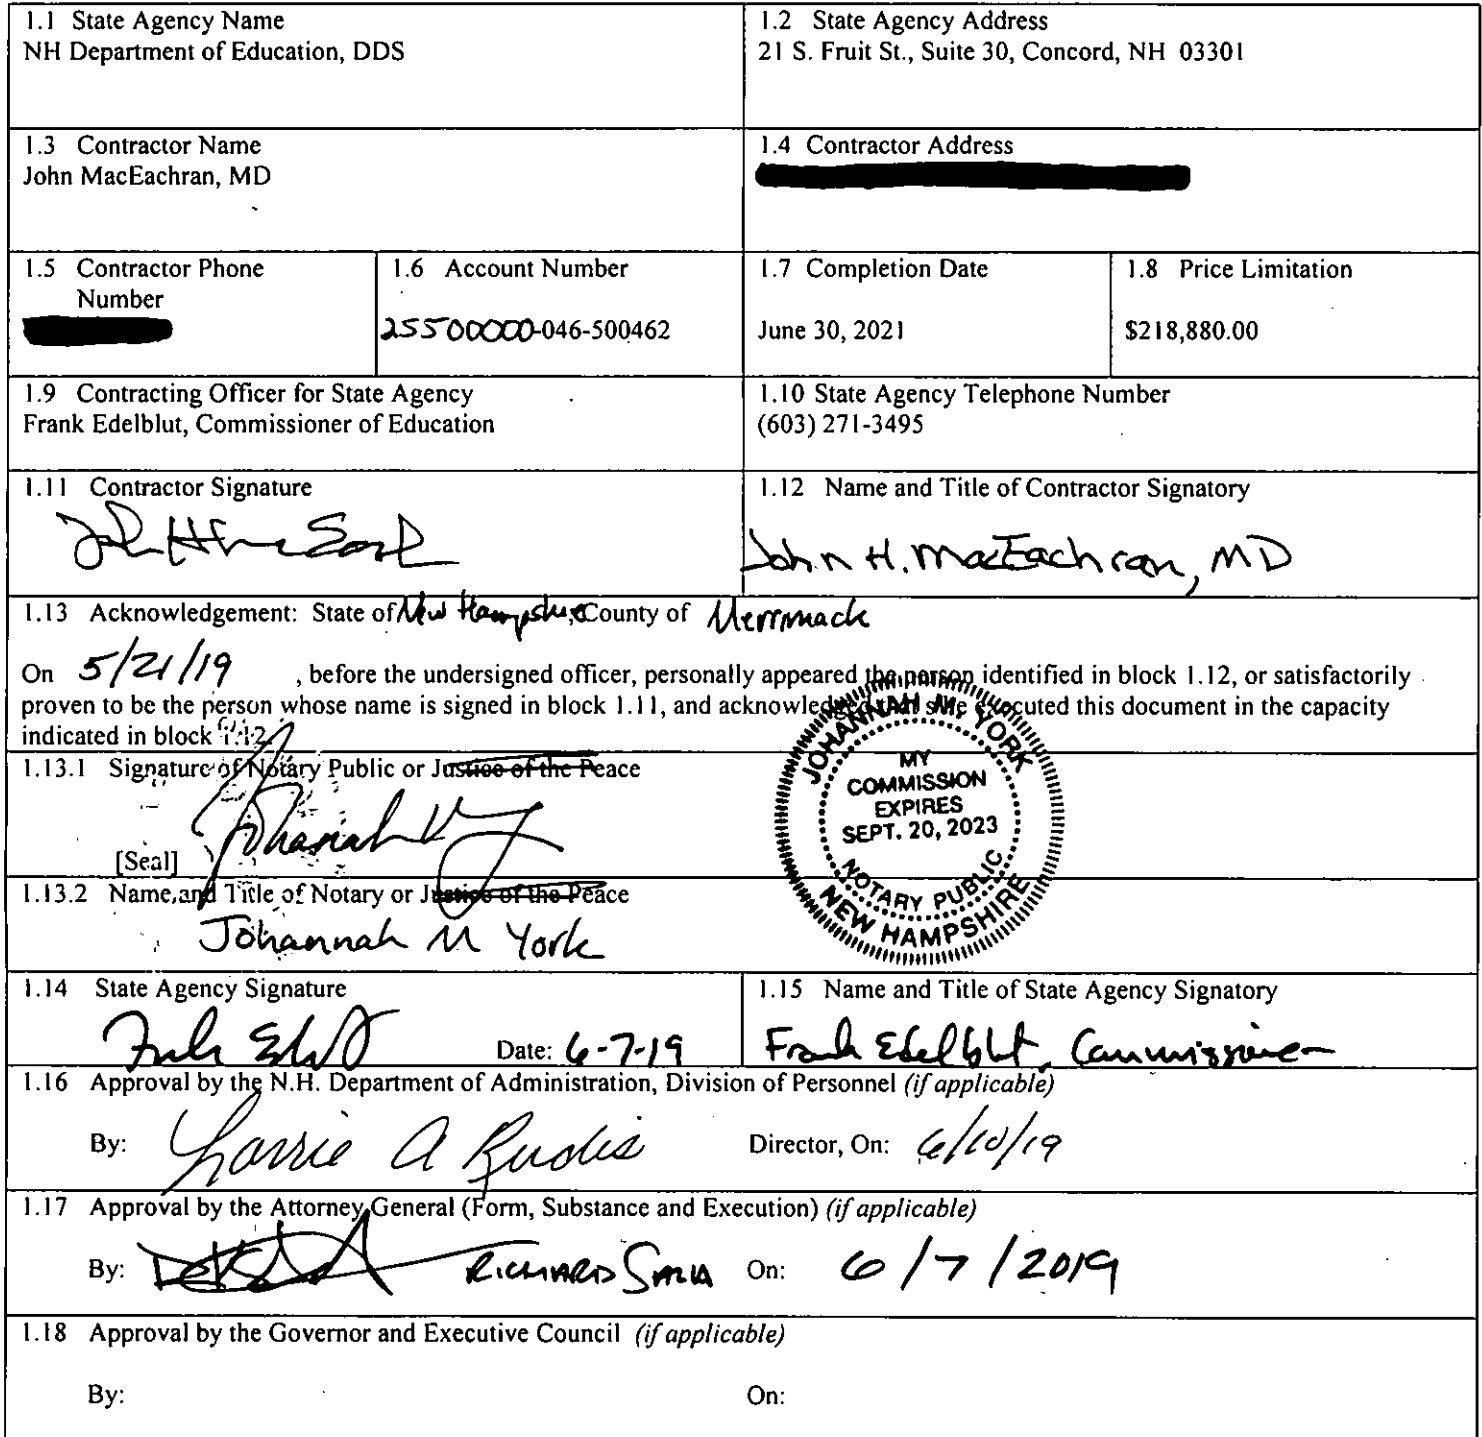 1.1 State Agency Name
NH Department of Education, DDS
1.2 State Agency Address
21 S. Fruit St., Suite 30, Concord, NH 03301
1.3 Contractor Name
John MacEachran, MD
1.4 Contractor Address
1.5 Contractor Phone
Number
1.6 Account Number
25500000-046-500462
1.7 Completion Date
June 30, 2021
1.8 Price Limitation
$218,880.00
1.9 Contracting Officer for State Agency
Frank Edelblut, Commissioner of Education
1.10 State Agency Telephone Number
(603) 271-3495
1.11 Contractor Signature
1.12 Name and Title of Contractor Signatory
John H. MacEachran, MD
1.13 Acknowledgement: State of New Hampshire, County of Merrimack
On 5/21/19 , before the undersigned officer, personally appeared the person identified in block 1.12, or satisfactorily
proven to be the person whose name is signed in block 1.11, and acknowledged that s/he executed this document in the capacity
indicated in block 1.12.
1.13.1 Signature of Notary Public or Justice of the Peace
[Seal]
JOHANNAH M. YORK
MY
COMMISSION
EXPIRES
SEPT. 20, 2023
NOTARY PUBLIC
NEW HAMPSHIRE
1.13.2 Name and Title of Notary or Justice of the Peace
Johannah M York
1.14 State Agency Signature
Date: 6-7-19
1.15 Name and Title of State Agency Signatory
Frank Edelblut, Commissioner
1.16 Approval by the N.H. Department of Administration, Division of Personnel (if applicable)
By: Lorrie A Rudis Director, On: 6/10/19
1.17 Approval by the Attorney General (Form, Substance and Execution) (if applicable)
By: RICHARD On: 6/7/2019
1.18 Approval by the Governor and Executive Council (if applicable)
By: On: